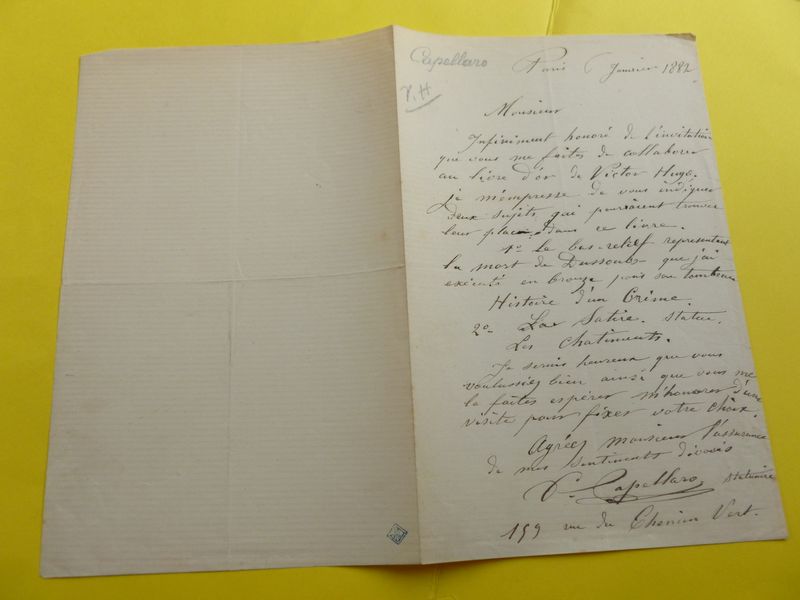 Capellaro
V. H
Paris 6 Janvier 1882
Monsieur
Infiniment honoré de l'invitation
que vous me faites de collaborer
au livre d'or de Victor Hugo,
je m'empresse de vous indiquer
deux sujets qui pourraient trouver
leur place dans ce livre.
1º Le bas-relief représentant
la mort de Dussoubs que j'ai
exécuté en bronze pour son tombeau
Histoire d'un Crime.
2º La Satire. statue.
Les Chatiments.
Je serais heureux que vous
voulussiez bien ainsi que vous me
le faites espérer m'honorer d'une
visite pour fixer votre choix.
Agréez monsieur l'assurance
de mes sentiments dévoués
Capellaro statuaire
159 rue du Chemin Vert.